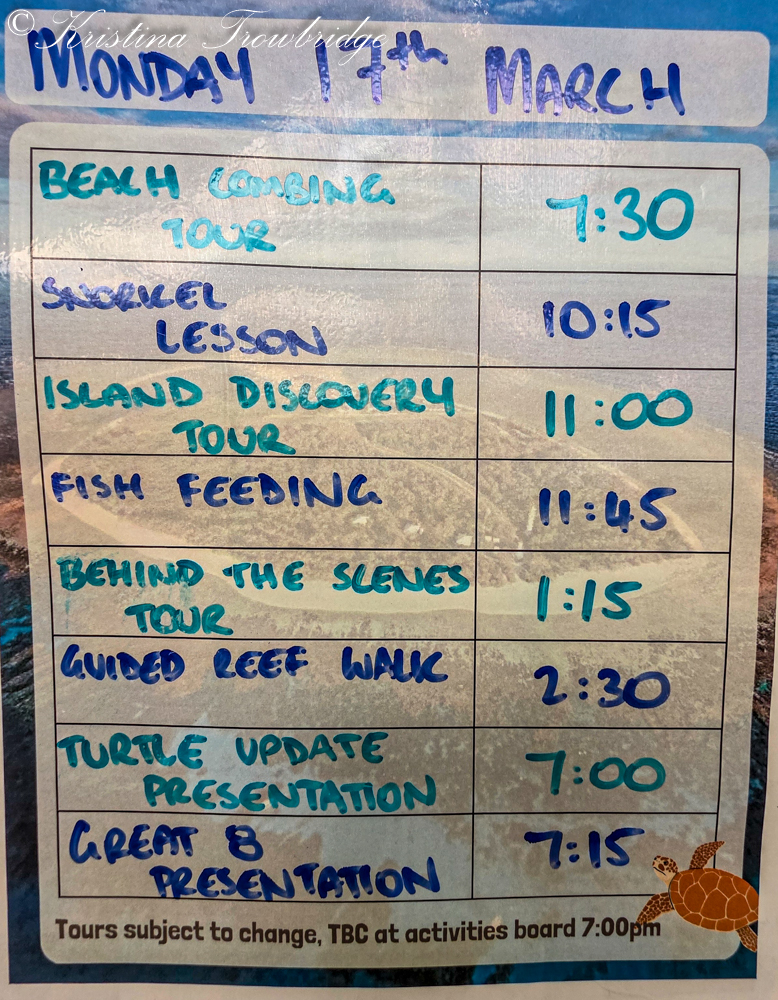 © Kristina Trowbridge
MONDAY 17th MARCH
BEACH COMBING
TOUR
7:30
SNORKEL
LESSON
10:15
ISLAND DISCOVERY
TOUR
11:00
FISH FEEDING
11:45
BEHIND THE SCENES
TOUR
1:15
GUIDED REEF WALK
2:30
TURTLE UPDATE
PRESENTATION
7:00
GREAT 8
PRESENTATION
7:15
Tours subject to change, TBC at activities board 7:00pm